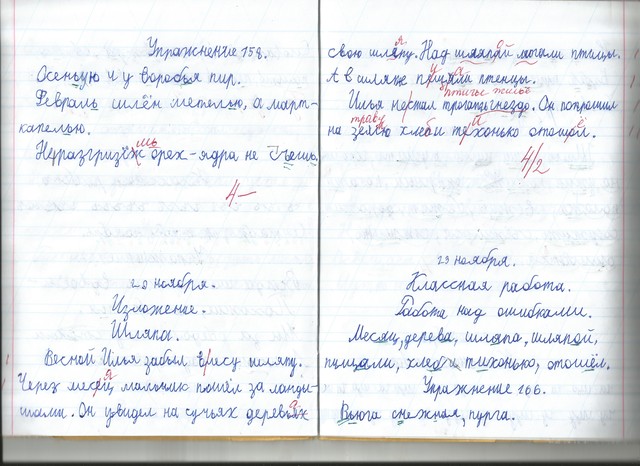 Упражнение 158.
Осенью и у воробья пир.
Февраль силён метелью, а март-
капелью.
Неразгризёж орех - ядра не съешь.
шь
4-
29 ноября.
Изложение.
Шляпа.
Весной Илья забыл в лесу шляпу.
Через месяц мальчик пошёл за ланды-
шами. Он увидел на сучьях деревьях
свою шляпу. Над шляпой могали птицы.
А в шляпе пищали птенцы.
птичье жильё
Илья не стал трогать гнездо. Он покрошил
траву
на землю хлеб и тихонько отошёл.
4/2
29 ноября.
Классная работа.
Работа над ошибками.
Месяц, дерева, шляпа, шляпой,
пищали, хлеб и тихонько, отошёл.
Упражнение 166.
Вьюга снежная, пурга.